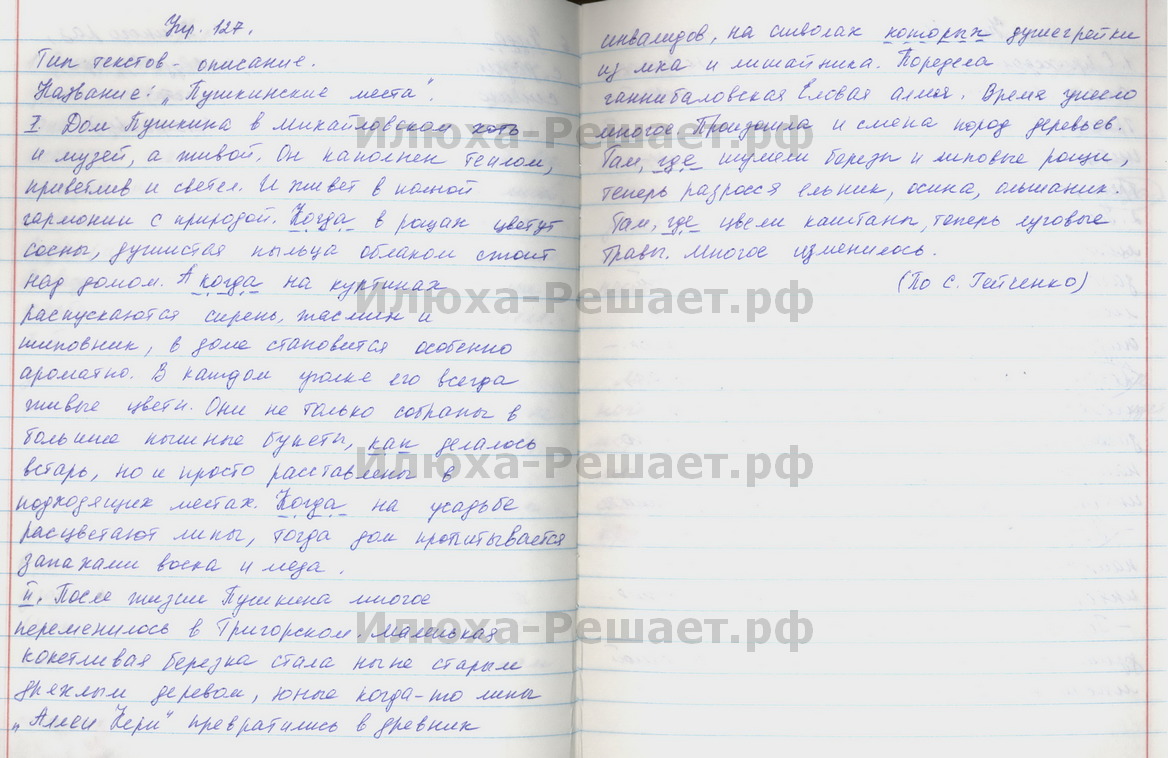 Упр. 127.
Тип текстов - описание.
Название: „Пушкинские места".
I. Дом Пушкина в Михайловском хоть
и музей, а живой. Он наполнен теплом,
приветлив и светел. И живет в полной
гармонии с природой. Когда в рощах цветут
сосны, душистая пыльца облаком стоит
над домом. А когда на куртинах
распускаются сирень, жасмин и
шиповник, в доме становится особенно
ароматно. В каждом уголке его всегда
живые цветы. Они не только собраны в
большие пышные букеты, как делалось
встарь, но и просто расставлены в
подходящих местах. Когда на усадьбе
расцветают липы, тогда дом пропитывается
запахами воска и меда.
II. После жизни Пушкина многое
переменилось в Тригорском. Маленькая
кокетливая березка стала ныне старым
дряхлым деревом, юные когда-то липы
„Аллеи Керн" превратились в древних
инвалидов, на стволах которых душегрейки
из мха и лишайника. Поредела
ганнибаловская Еловая аллея. Время унесло
многое. Произошла и смена пород деревьев.
Там, где шумели березы и липовые рощи,
теперь разросся ельник, осина, ольшаник.
Там, где цвели каштаны, теперь луговые
травы. Многое изменилось.
(По С. Гейченко)
Илюха-Решает.рф
Илюха-Решает.рф
Илюха-Решает.рф
Илюха-Решает.рф